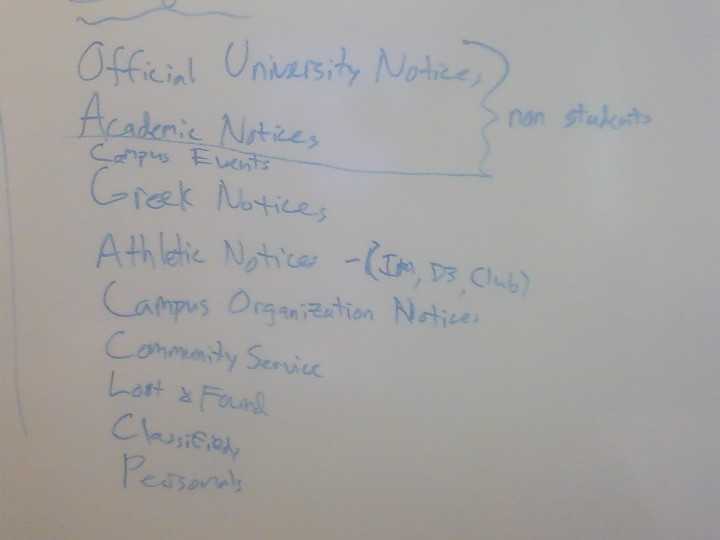 Official University Notices
non students
Academic Notices
Campus Events
Greek Notices
Athletic Notices - (IM, D3, Club)
Campus Organization Notices
Community Service
Lost & Found
Classifieds
Personals